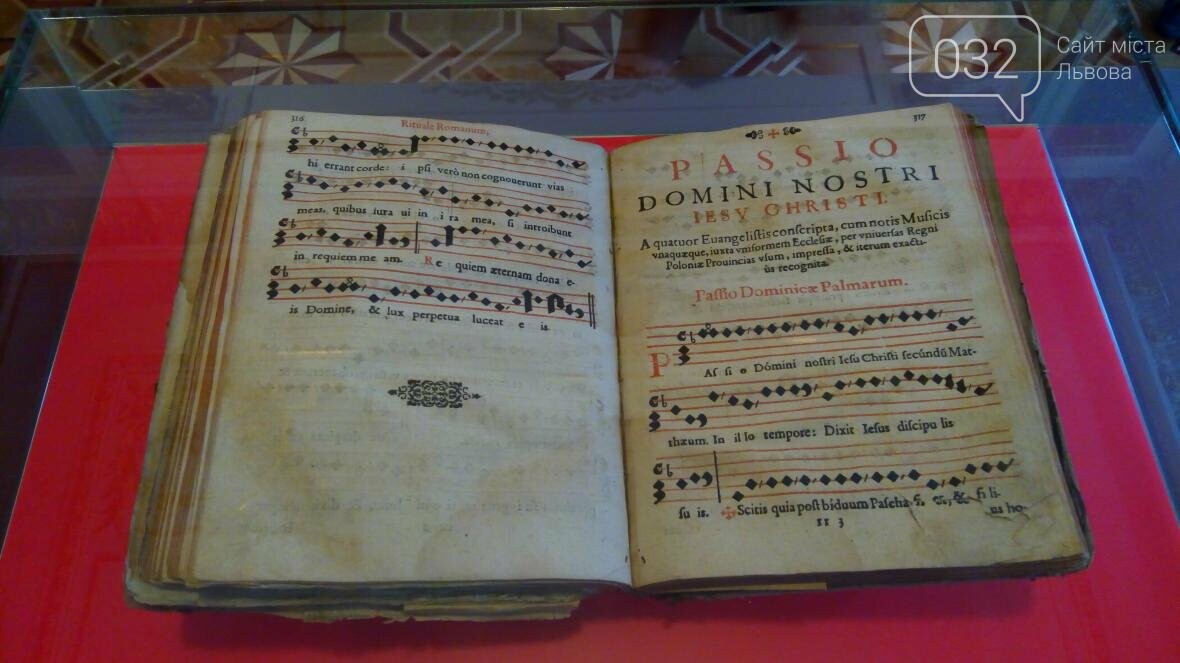 032
Сайт міста
Львова
316
Rituale Romanum,
hi errant corde: i psi verò non cognouerunt vias
meas, quibus iura ui in i ra mea, si introibunt
in requiem me am. Re quiem æternam dona e-
is Domine, & lux perpetua luceat e is
317
PASSIO
DOMINI NOSTRI
IESV CHRISTI.
A quatuor Euangelistis conscripta, cum notis Musicis
vnaquæque, iuxta vniformem Ecclesiæ, per vniuersas Regni
Poloniæ Prouincias vsum, impressa, & iterum exacti-
ùs recognita.
Passio Dominicæ Palmarum.
PAs si o Dómini nostri Iesu Christi secúndũ Mat-
thæum. In il lo tempore: Dixit Iesus discipu lis
su is. ✠ Scitis quia post biduum Pascha fi. et, & fi li-
us ho-
II 3